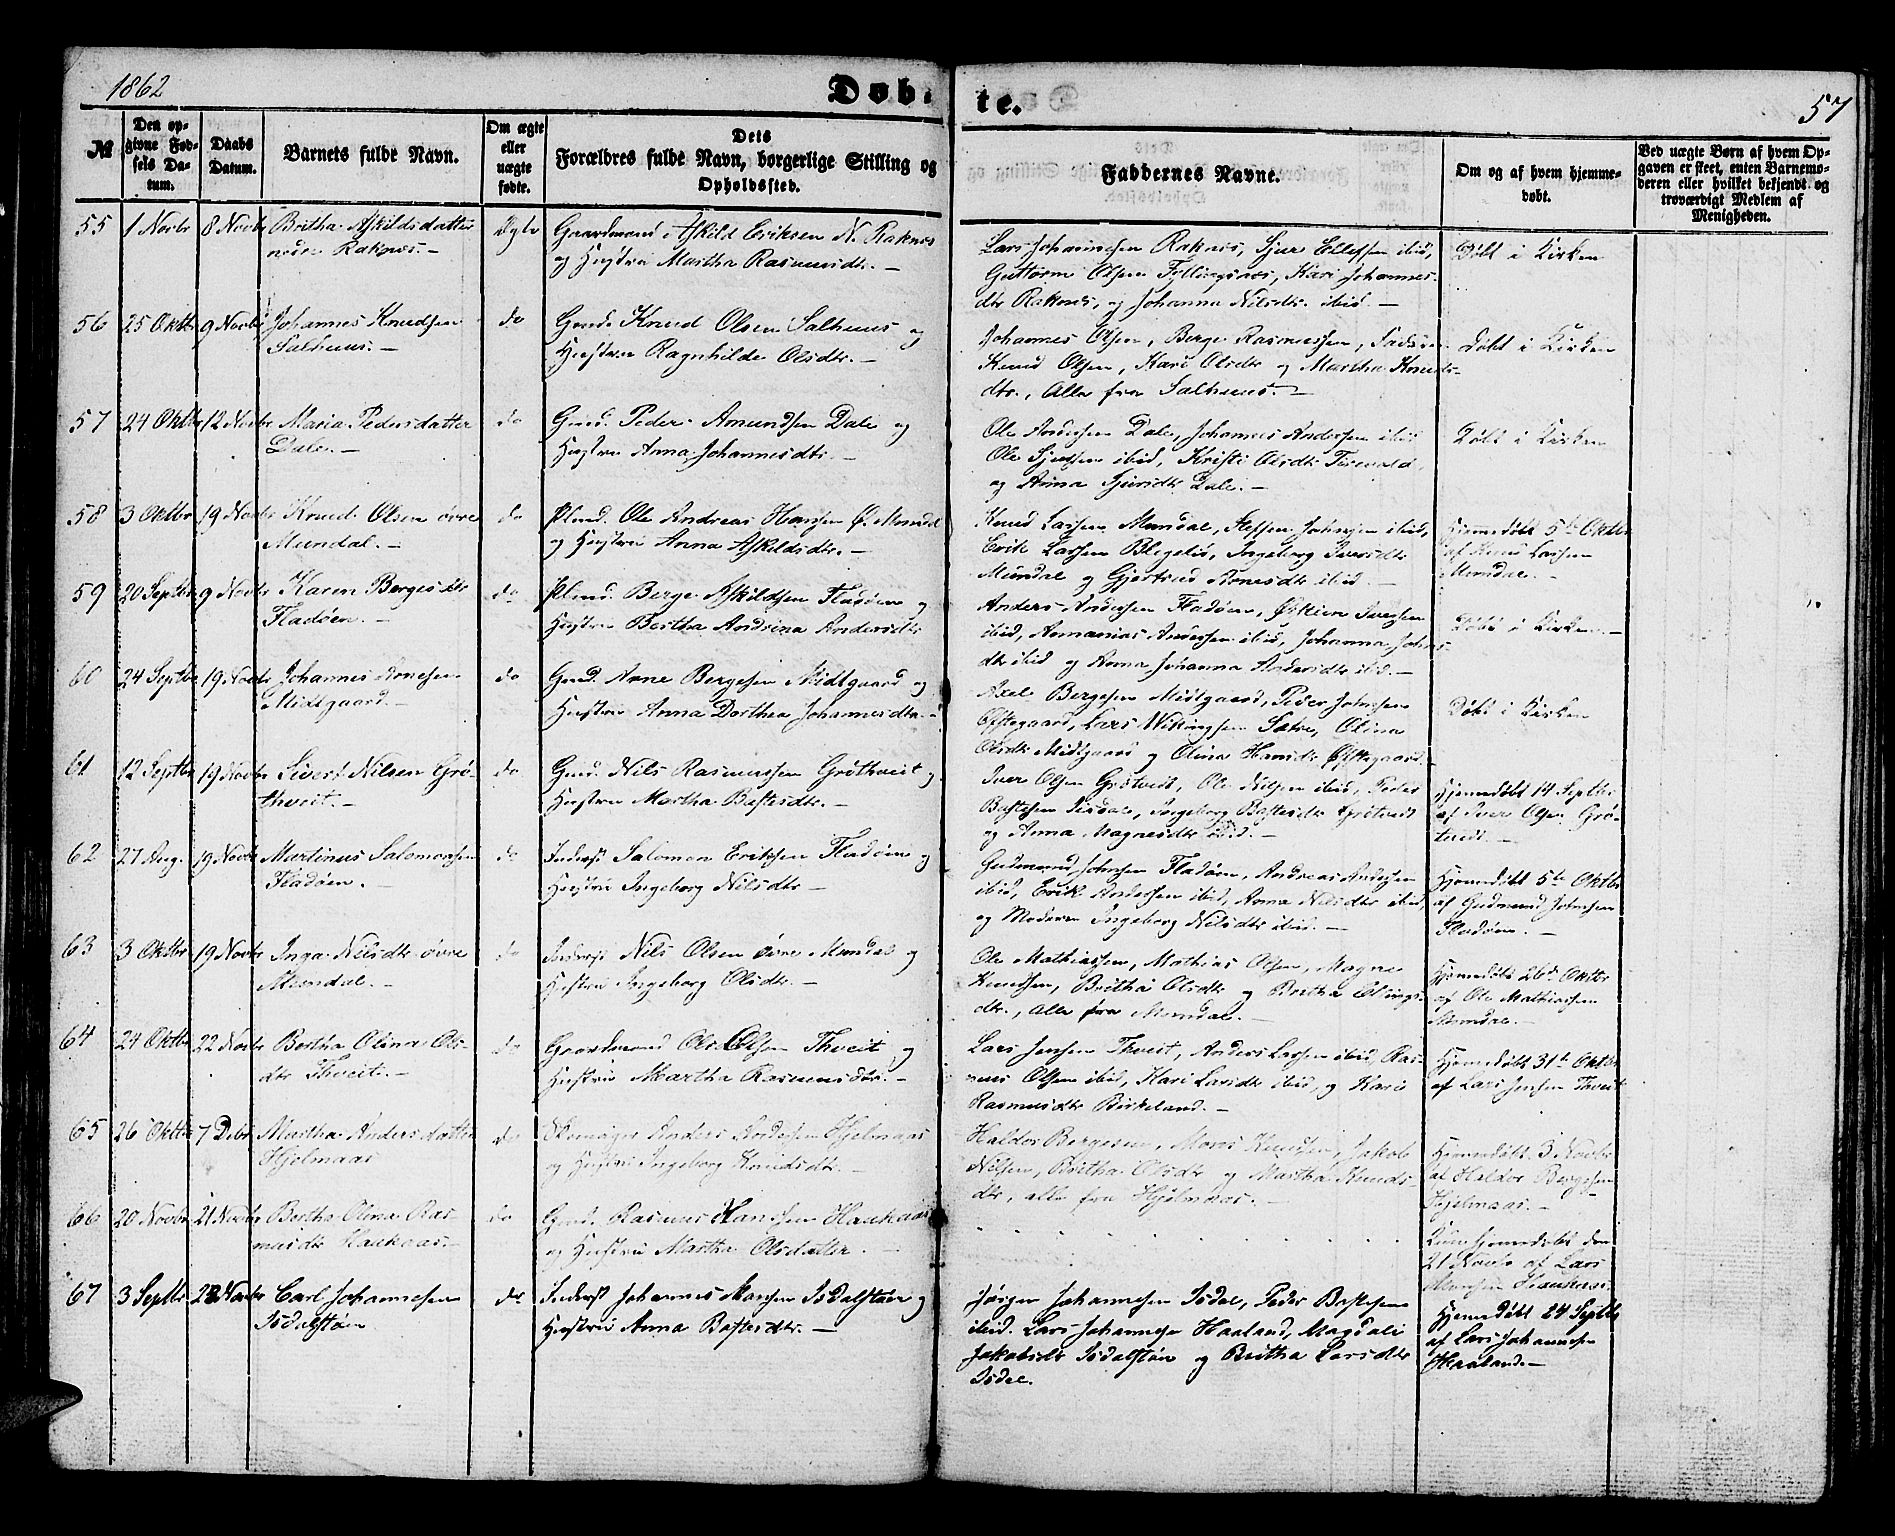 1862
Døbte.
57
№
Den opgivne Fødsels Datum.
Daabs Datum.
Barnets fulde Navn.
Om ægte eller uægte fødte.
Dets Forældres fulde Navn, borgerlige Stilling og Opholdssted.
Faddernes Navne.
Om og af hvem hjemmedøbt.
Ved uægte Børn af hvem Opgaven er skeet, enten Barnemoderen eller hvilket bekjendt og troværdigt Medlem af Menigheden.
55 1 Novbr 8 Novbr Britha Askildsdatter
nedre Raknes.
Ægte
Gaardmand Askild Eriksen N. Raknes
og Hustru Martha Rasmusdtr.
Lars Johannesen Raknes, Sjur Ellefsen ibid,
Guttorm Olsen Fyllingsnæs, Kari Johannes-
dtr Raknes, og Johanna Nilsdtr. ibid.
Døbt i Kirken
56 25 Oktbr 9 Novbr Johannes Knudsen
Salhuus.
do
Gmd. Knud Olsen Salhuus og
Hustru Ragnhilde Olsdtr.
Johannes Olsen, Berge Rasmussen, Faderen
Knud Olsen, Kari Olsdtr og Martha Knuds-
dtr., Alle fra Salhuus.
Døbt i Kirken
57 24 Oktbr 12 Novbr Maria Pedersdatter
Dale.
do
Gmd. Peder Amundsen Dale og
Hustru Anna Johannesdtr.
Ole Andersen Dale, Johannes Andersen ibid
Ole Sjursen ibid, Kristi Olsdtr
og Anna Sjursdtr Dale.
Døbt i Kirken
58 3 Oktbr 19 Novbr Knud Olsen øvre
Mundal.
do
Plmd. Ole Andreas Hansen Ø. Mundal
og Hustru Anna Askildsdtr.
Knud Larssen Mundal, Steffen Johnsen ibid,
Erik Larssen, Ingeborg Iversdtr
Mundal og Gjertrud Arnesdtr ibid.
Hjemmedøbt 5te Oktbr
af Knud Larssen
Mundal.
59 20 Septbr 9 Novbr Karen Bergesdtr
Fladøen.
do
Plmd. Berge Askildsen Fladøen og
Hustru Bertha Andrina Andersdtr
Anders Andersen Fladøen, Østein Iversen
ibid, Annanias Andersen ibid, Johanna Johns-
dtr ibid og Anna Johanna Andersdtr ibid.
Døbt i Kirken.
60 24 Septbr 19 Novbr Johannes Arnesen
Midtgaard.
do
Gmd. Arne Bergesen Midtgaard og
Hustru Anna Dorthea Johannesdtr.
Axel Bergesen Midtgaard, Peder Johnsen
Øftegaard, Lars Wikingsen Sætre, Olina
Olsdtr Midtgaard og Olina Hansdtr Øftegaard.
Døbt i Kirken
61 12 Septbr 19 Novbr Sivert Nilsen Grø-
thveit.
do
Gmd. Nils Rasmussen Grøthveit og
Hustru Martha Bastesdtr.
Iver Olsen Grøtvedt, Ole Nilsen ibid, Peder
Bastesen Isdale, Ingeborg Bastesdtr Grøtvedt
og Anna Magnesdtr ibid.
Hjemmedøbt 14 Septbr
af Iver Olsen Grø-
tvedt.
62 27 Aug. 19 Novbr Martinus Salomonsen
Fladøen.
do
Inderst Salomon Eriksen Fladøen og
Hustru Ingeborg Nilsdtr
Gudmund Johnsen Fladøen, Andreas Andersen
ibid, Erik Andersen ibid, Anna Nilsdtr ibid,
og Moderen Ingeborg Nilsdtr ibid.
Hjemmedøbt 5te Oktbr
af Gudmund Johnsen
Fladøen.
63 3 Oktbr 19 Novbr Inga Nilsdtr øvre
Mundal.
do
Inderst Nils Olsen øvre Mundal og
Hustru Ingeborg Olsdtr.
Ole Mathiassen, Mathias Olsen, Magne
Knudsen, Britha Olsdtr og Britha
dtr., alle fra Mundal.
Hjemmedøbt 26de Oktbr
af Ole Mathiassen
Mundal.
64 24 Oktbr 22 Novbr Bertha Olina Ols-
dtr Thveit.
do
Gaardmand Ole Olsen Thveit og
Hustru Martha Rasmusdtr.
Lars Jensen Thveit, Anders Larsen ibid, Ras-
mus Olsen ibid, Kari Larsdtr ibid, og Kari
Rasmusdtr Birkeland.
Hjemmedøbt 31te Oktbr
af Lars Jensen Thveit
65 26 Oktbr 7 Debr Martha Andersdatter
Hjelmaas
do
Skomager Anders Hjelmaas
og Hustru Ingeborg Knudsdtr.
Haldor Bergesen, Mons Knudsen, Jakob
Nilsen, Britha Olsdtr og Martha Knuds-
dtr, alle fra Hjelmaas.
Hjemmedøbt 3 Novbr
af Haldor Bergesen
Hjelmaas.
66 20 Novbr 21 Novbr Bertha Olina Ras-
musdtr Haukaas.
do
Gmd. Rasmus Hanssen Haukaas
og Hustru Martha Olsdatter.
Kun hjemmedøbt den
21 Novbr af Lars
Monsen Haukaas.
67 3 Septbr 23 Novbr Carl Johannesen
Isdalstøen
do
Inderst Johannes Hansen Isdalstøen og
Hustru Anna Bastesdtr.
Jørgen Johannesen Isdal, Peder Bastesen
ibid. Lars Johannesen Haaland, Magdali
Jakobsdtr Isdalstøn og Britha Larsdtr
Isdal.
Hjemmedøbt 24 Septbr
af Lars Johannesen
Haaland.